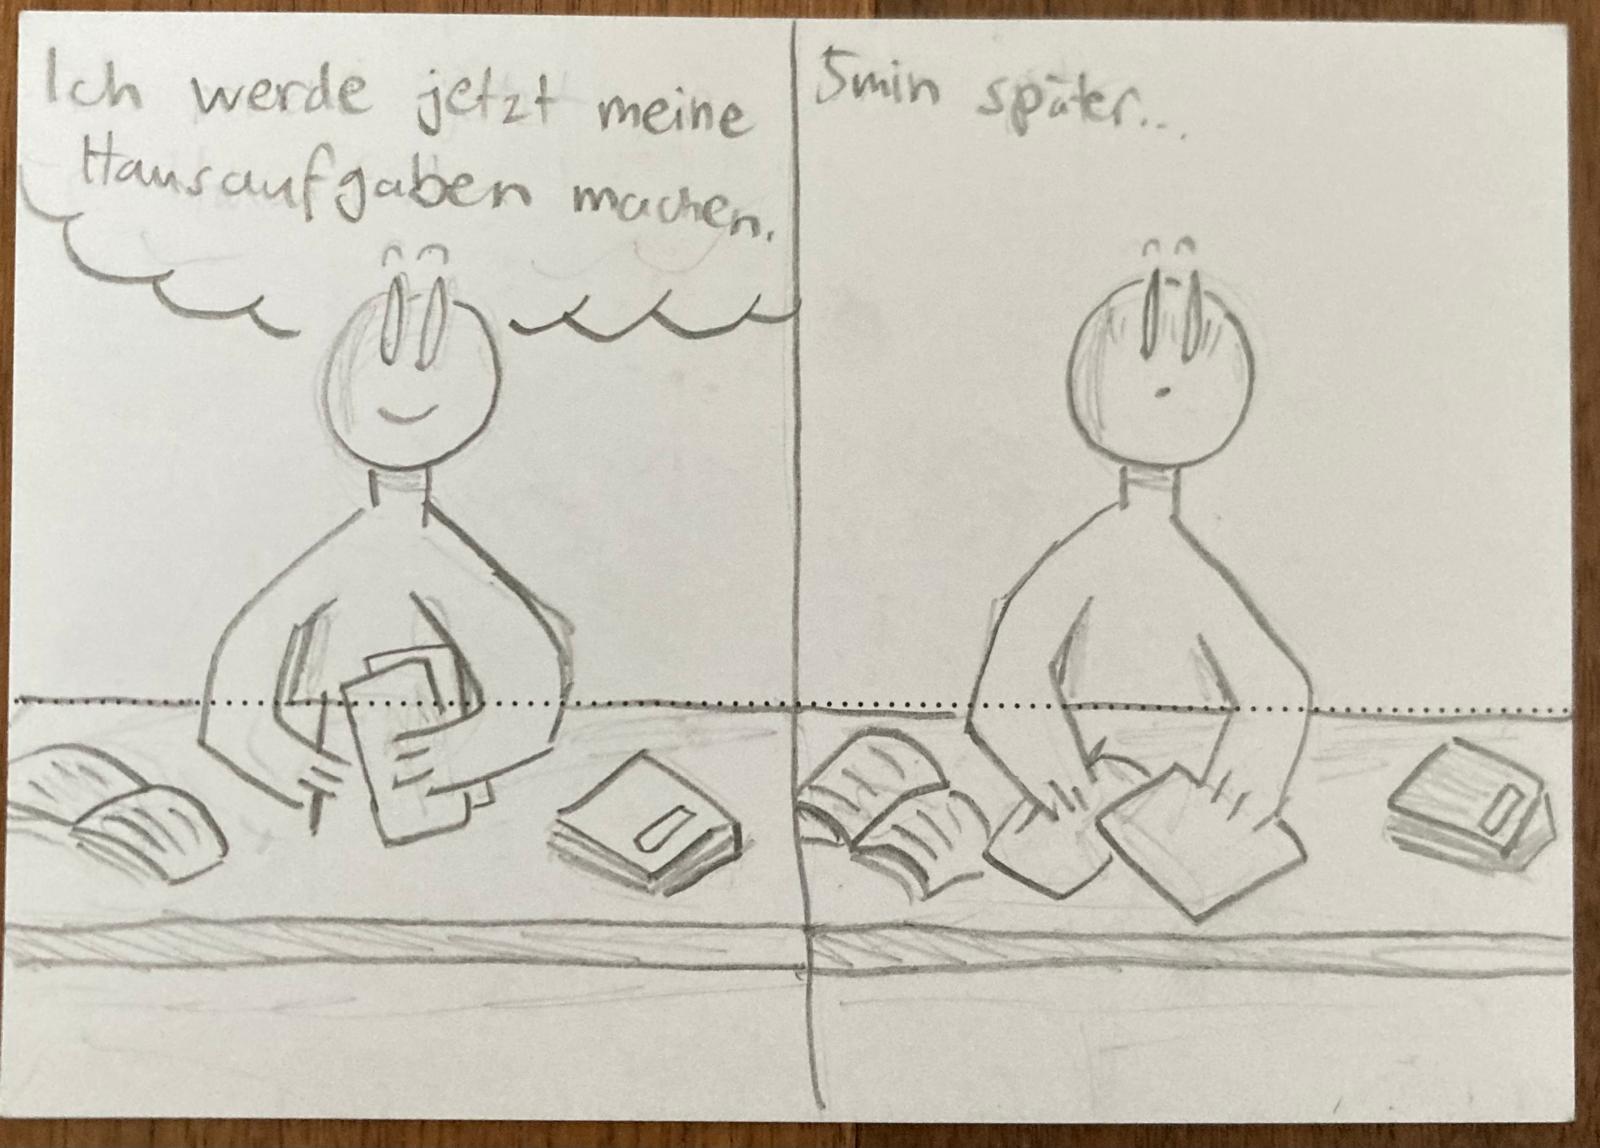 Ich werde jetzt meine
Hausaufgaben machen.
5min später...